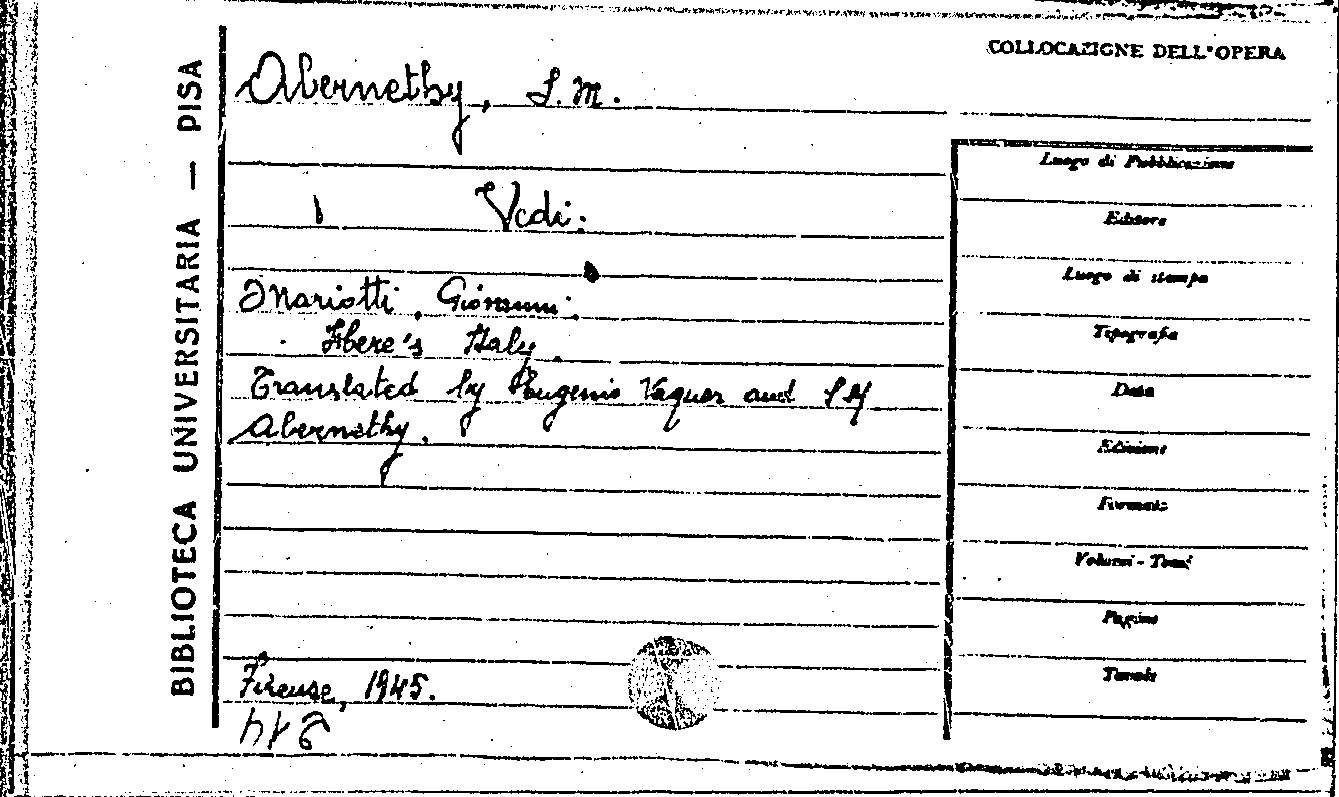 COLLOCAZIONE DELL'OPERA
BIBLIOTECA UNIVERSITARIA — PISA
Abernethy, S.M.
Vedi:
Mariotti, Giovanni.
Here's Italy.
Translated by Eugenio Vaquer and S M
Abernethy.
Firenze, 1945.
Luogo di Pubblicazione
Editore
Luogo di stampa
Tipografia
Data
Edizione
Formato
Volumi - Tomi
Pagine
Tavole